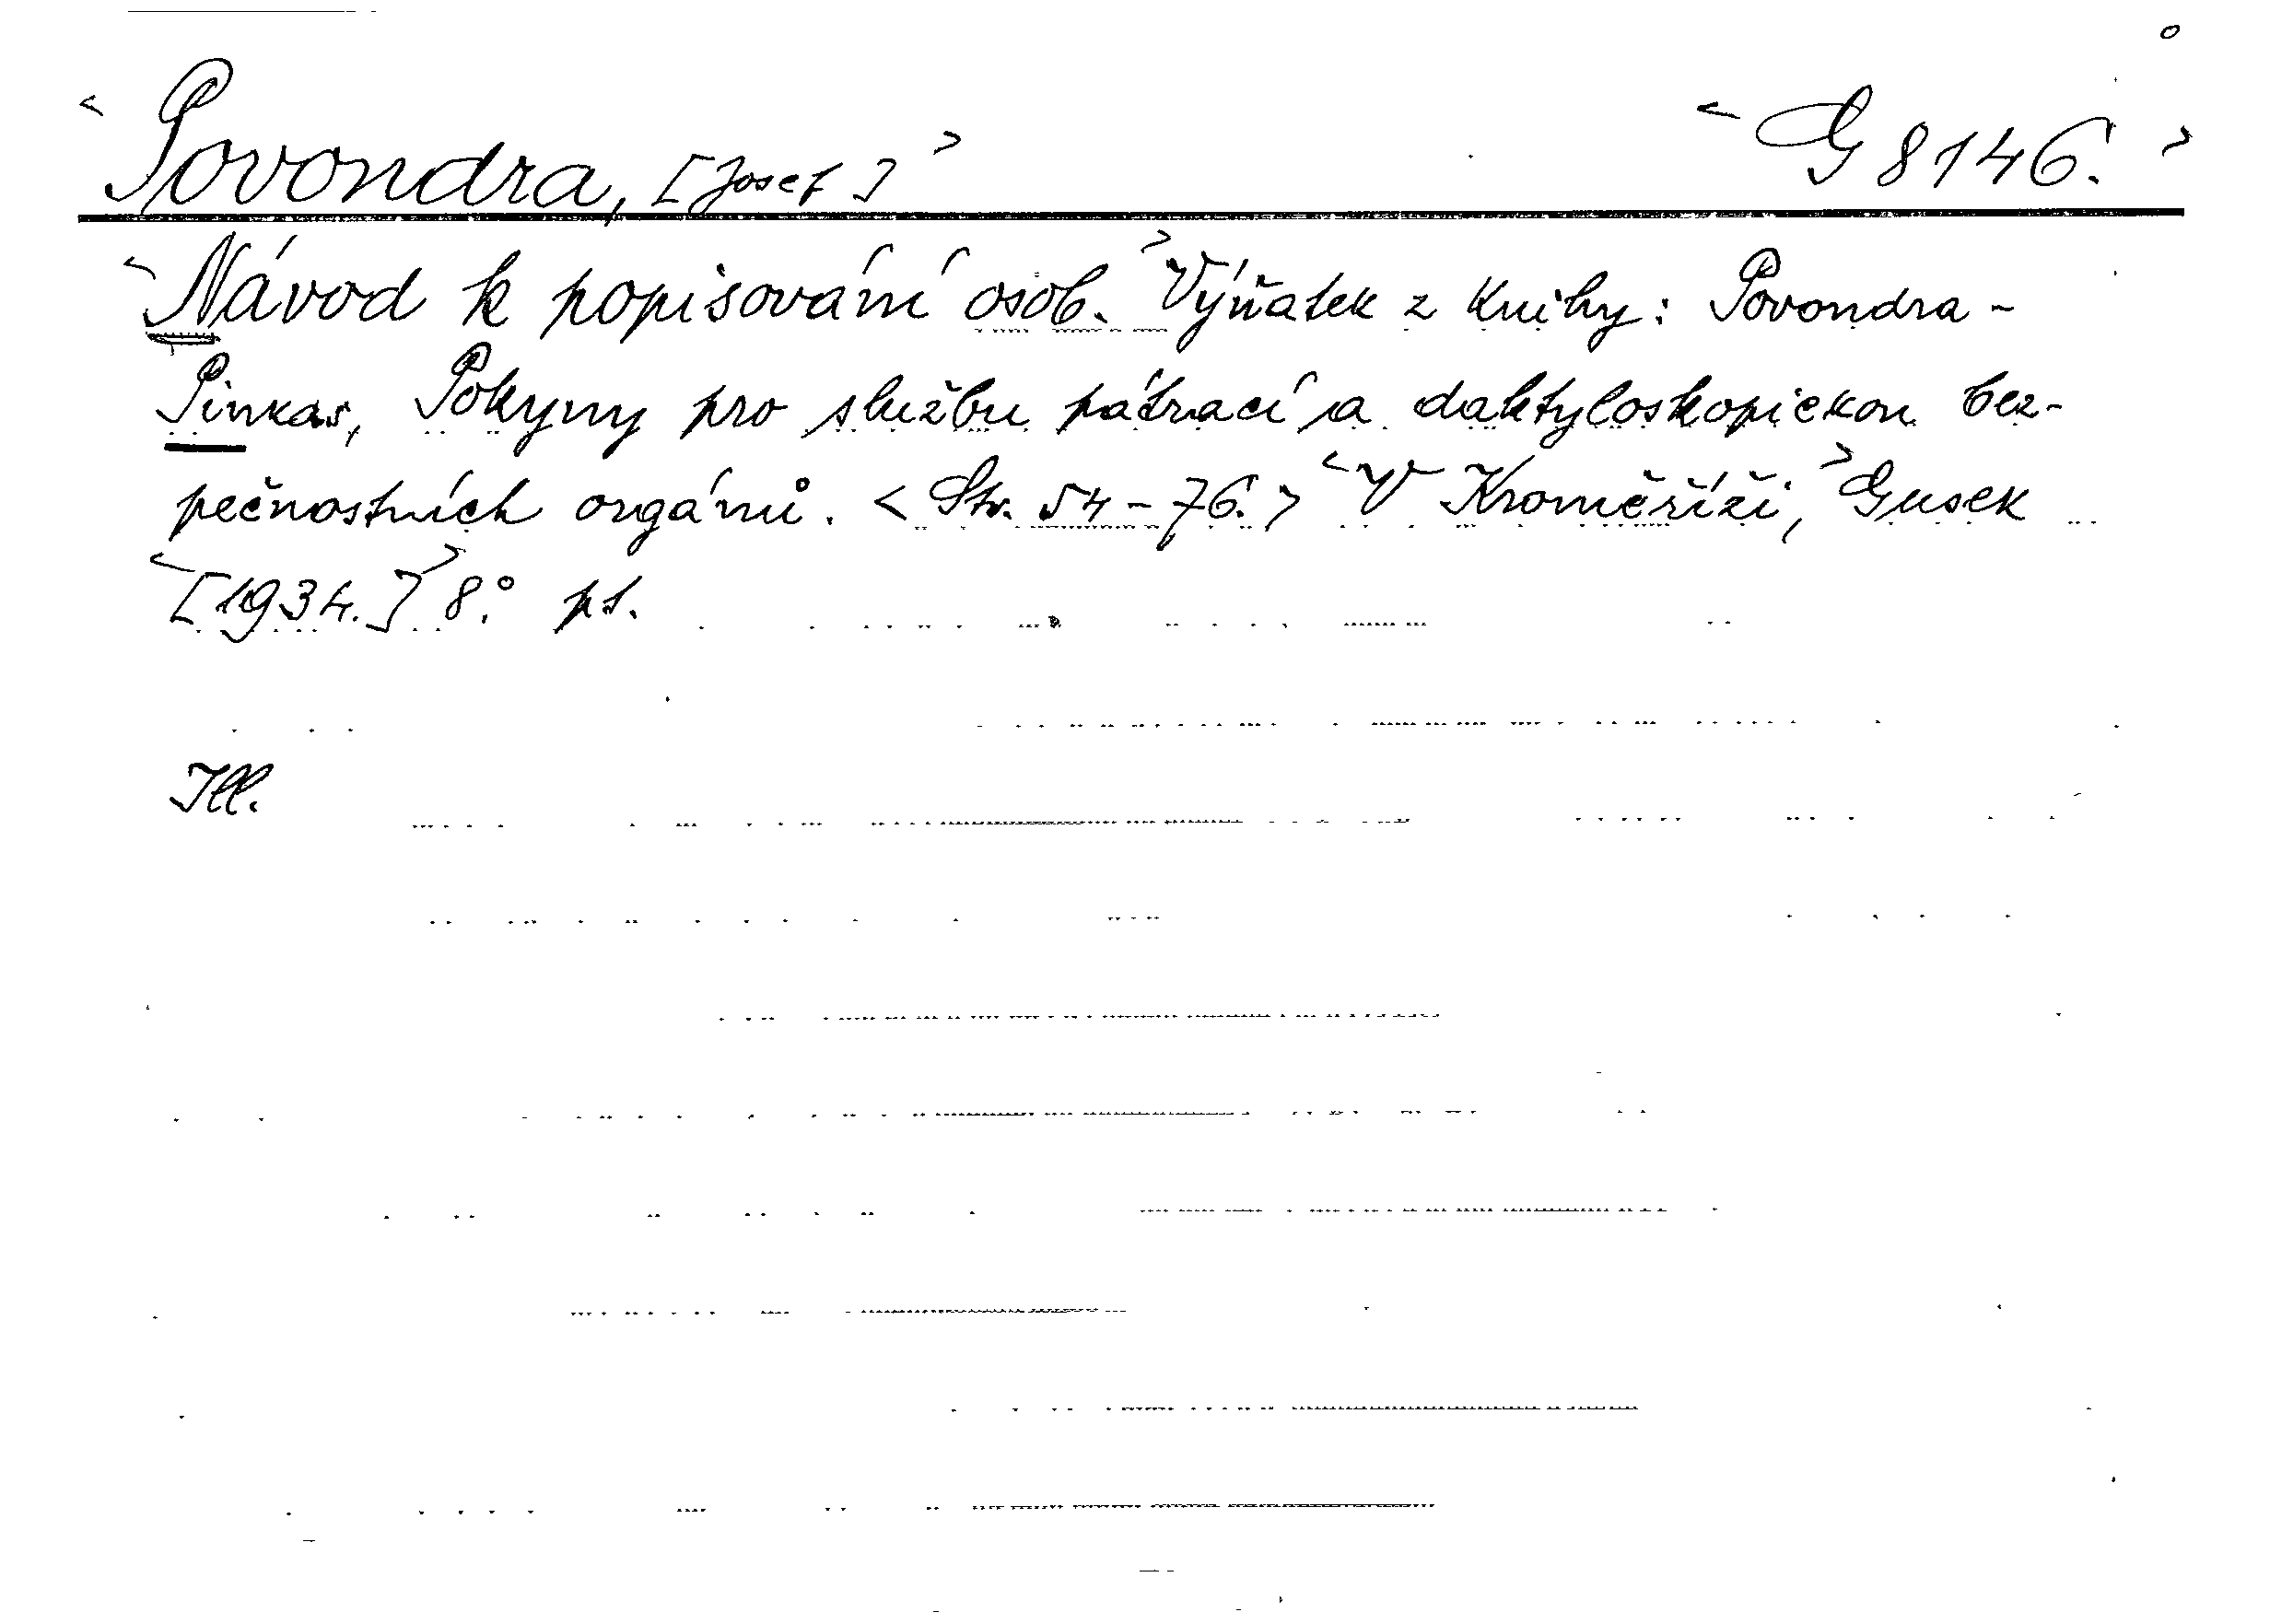 < Povondra, [Josef] > < G 8146. >
< Návod k popisování osob. > Výňatek z knihy: Povondra -
Pinkas, Pokyny pro službu pátrací a daktyloskopickou bez-
pečnostních orgánů. < Str. 54-76. > < V Kroměříži, > Gusek
< [1934.] > 8.° pt.
Ill.